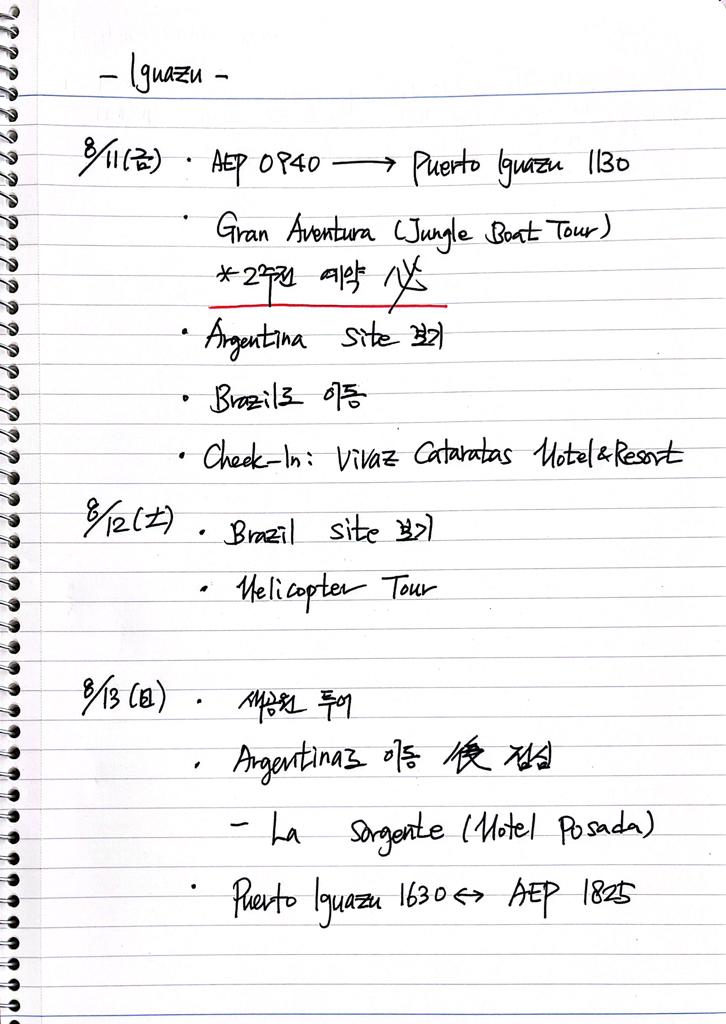 - Iguazu -
8/11(금) · AEP 0940 → Puerto Iguazu 1130
· Gran Aventura (Jungle Boat Tour)
*2주전 예약 必
· Argentina Site 보기
· Brazil로 이동
· Check-In: Vivaz Cataratas Hotel&Resort
8/12(土) · Brazil Site 보기
· Helicopter Tour
8/13(日) · 새공원 투어
· Argentina로 이동 後 점심
- La Sorgente (Hotel Posada)
· Puerto Iguazu 1630 ↔ AEP 1825